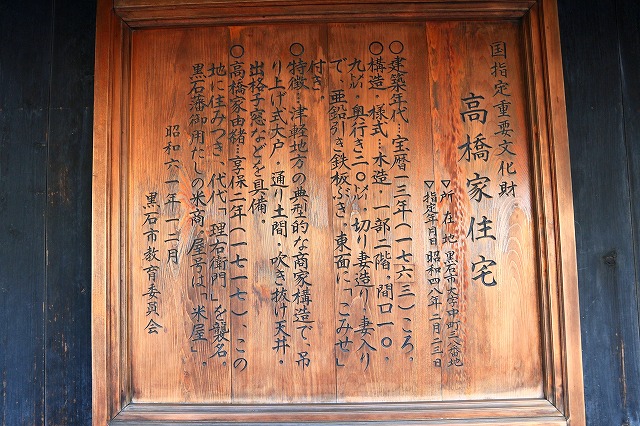 国指定重要文化財
高橋家住宅
▽所在地 黒石市大字中町三八番地
▽指定年月日 昭和四八年二月二三日
○建築年代…宝暦一三年(一七六三)ころ。
○構造・様式…木造、一部二階、間口一〇、
九㍍、奥行き二〇㍍、切り妻造り、妻入り
で、亜鉛引き鉄板ぶき、東面に「こみせ」
付き。
○特徴…津軽地方の典型的な商家構造で、吊
り上げ式大戸・通り土間・吹き抜け天井・
出格子窓などを具備。
○高橋家由緒…享保二年(一七一七)、この
地に住みつき、代代「理右衛門」を襲名。
黒石藩御用たしの米商。屋号は「米屋」。
昭和六一年一二月
黒石市教育委員会